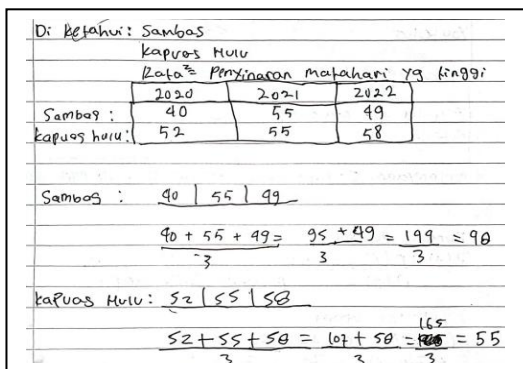 Di ketahui: Sambas
Kapuas Hulu
Rata²= Penyinaran matahari yg tinggi
2020 2021 2022
Sambas : 40 55 49
Kapuas hulu: 52 55 58
Sambas : 40 | 55 | 49
40 + 55 + 49 = 95 + 49 = 199 = 98
3 3 3
Kapuas Hulu: 52 | 55 | 58
165
52 + 55 + 58 = 107 + 58 = = 55
3 3 3